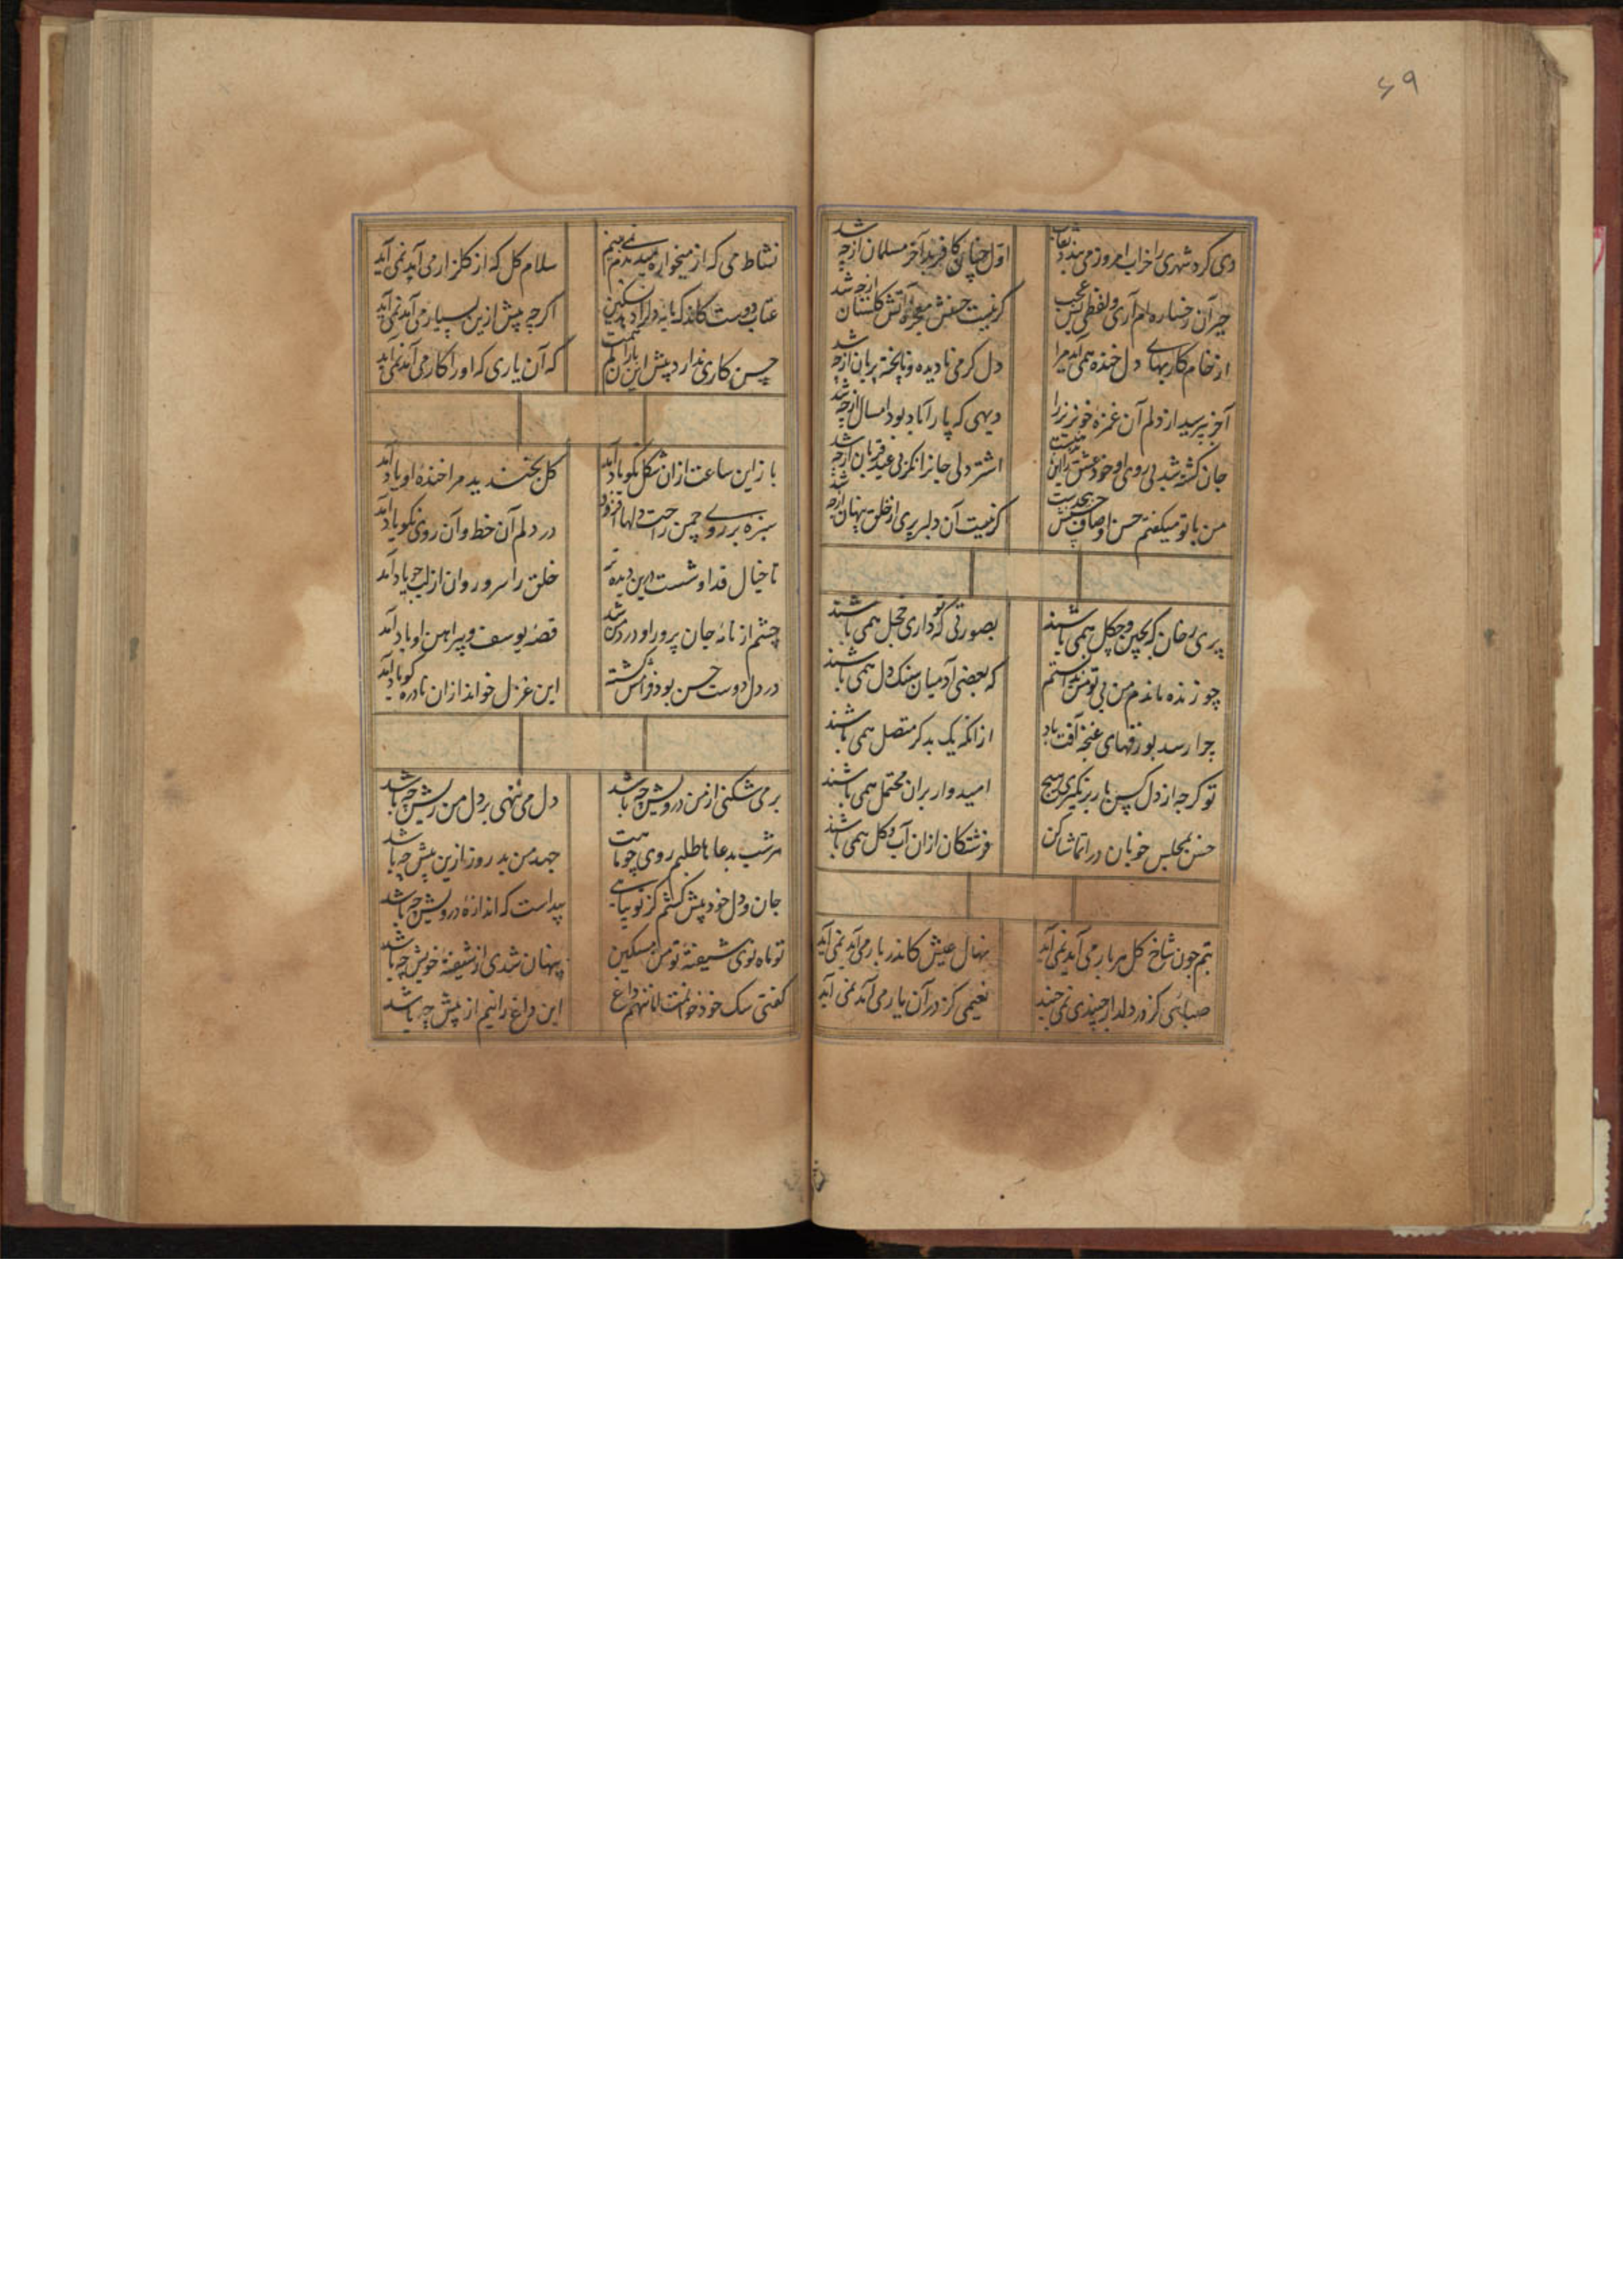 ۶۹
دی کرد شهری را خراب امروز می بندد نقاب
اول چنان کافر بد آخر مسلمان از چه شد
حیرانِ آن رخساره ام آری ولفظی بس عجب
گر نیست حسنش معجزه آتش گلستان از چه شد
از خام کاریهای دل خنده همی آید مرا
دل گرمی نادیده و ناپخته بریان از چه شد
آخر بپرسید از دلم آن غمزه خونریز را
دیهی که پار آباد بود امسال از چه شد
جان کشته شد بی روی او خود عشق را این
اشتر دلی جانرا نگر بی عید قربان از چه شد
من با تو میکفتم حسن اوصاف حسنش
گر نیست آن دلبر پری از خلق پنهان از چه شد
پری رخان که بچین و چکل همی باشند
بصورتی که تو داری خجل همی باشند
چو زنده ماندم من بی تو من ندانستم
که بعضی آدمیان سنک دل همی باشند
چرا رسد بورقهای غنچه آفت باد
ازانکه یک بدکر متصل همی باشند
تو کرچه از دل کس بار بر نکیری هیچ
امیدواربران محتمل همی باشند
حسن بمجلس خوبان درا تماشا کن
فرشتکان ازان آب وکل همی باشند
بتم چون شاخ کل هر بار می آید نمی آید
نهال عیش کاندر بار می آید نمی آید
صبائی کز در دلدار جنبدی نمی جنبد
نعیمی کز در آن یار می آمد نمی آید
نشاط می که از میخواره میدیدم نمی بینم
سلام کل که از کلزار می آید نمی آید
عتاب دوست کاندک مایه دلرا دادی تسکین
اکرچه پیش ازین بسیار می آمد نمی آید
حسن کاری ندارد پیش ازین
که آن یاری که او را کار می آمد نمی آید
باز این ساعت ازان شکل نکو یاد آمد
کل بخندید مرا خنده او یاد آمد
سبزه بر روی چمن راحت دلها افزود
در دلم آن خط و آن روی نکو یاد آمد
تا خیال قد او شست درین دیده تر
خلق را سرو روان از لب جو یاد آمد
چشم از نامه جان پرور او روشن شد
قصه یوسف و پیراهن او یاد آمد
در دل دوست حسن بود فرامش کشته
این غزل خواند ازان نادره کو یاد آمد
بر می شکنی از من درویش چه باشد
دل می ننهی بر دل من ریش چه باشد
هر شب بدعا ما طلبم روی چو ماهت
جهد من بد روز ازین بیش چه باشد
جان و دل خود پیش کشم کز تو بیابی
پیداست که اندازه درویش چه باشد
تو ماه نوی شیفته تو من مسکین
پنهان شدی از شیفته خویش چه باشد
کفتی سک خود خوانمت اما ننهم داغ
این داغ رانیم از پیش چه باشد